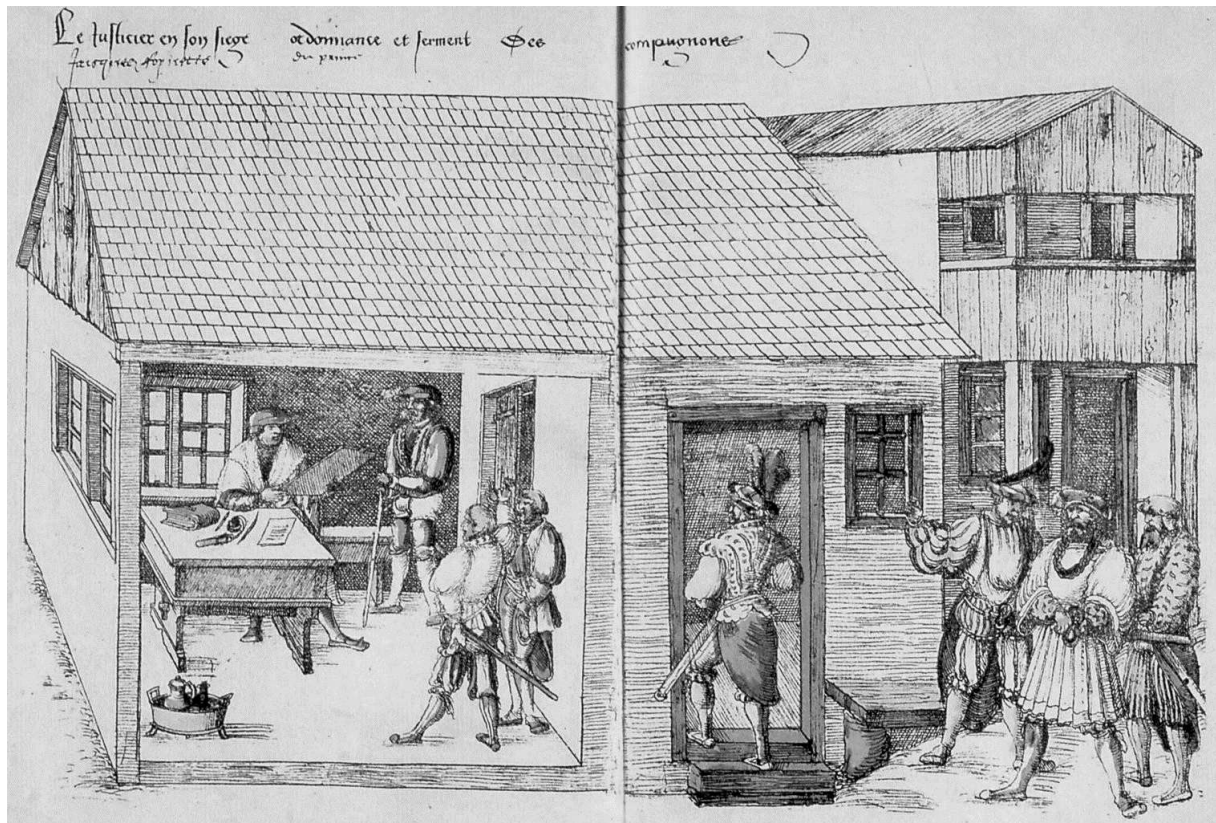 Le Justicier en son siege ordonnance et serment Des compagnons
du prince